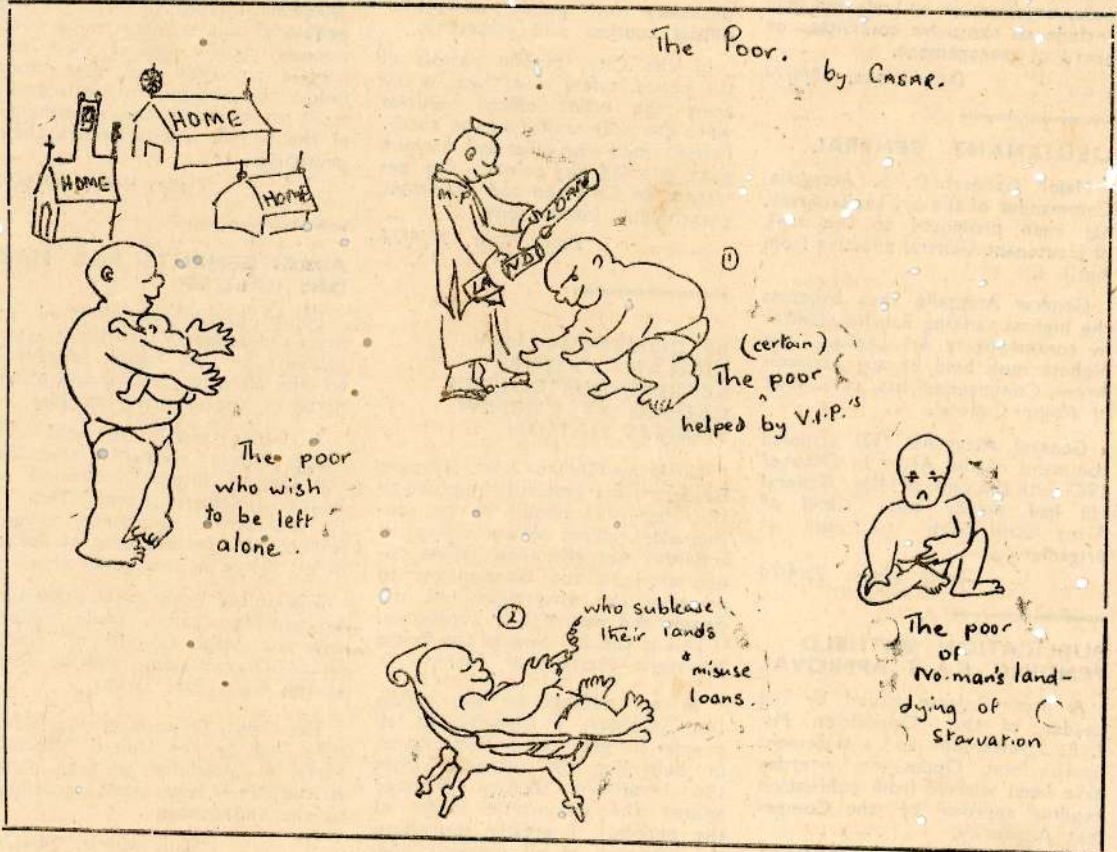 The Poor.
by CASAR.
HOME
HOME
HOME
M.P.
LOANS
LAND
①
(certain)
The poor ^
helped by V.I.P.'s
The poor
who wish
to be left
alone.
②
who sublease
their lands
* misuse
loans.
The poor
of
No-man's land-
dying of
starvation